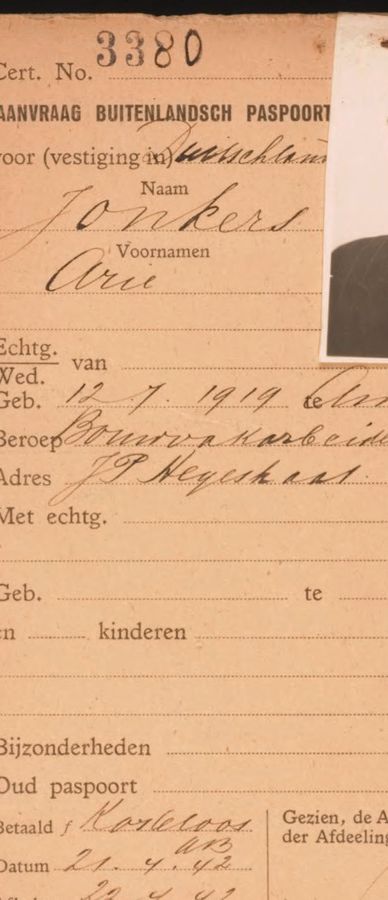 Cert. No. 3380
AANVRAAG BUITENLANDSCH PASPOORT
voor (vestiging in) Duitschlan
Naam
Jonkers
Voornamen
Arie
Echtg.
Wed. van
Geb. 12 7. 1919 te Am
Beroep Bouwvakarbeide
Adres JP Heyestraat.
Met echtg.
Geb. te
en kinderen
Bijzonderheden
Oud paspoort
Betaald f Kosteloos
Gezien, de A
der Afdeeling
Datum 21. 4. 42
22 4 42